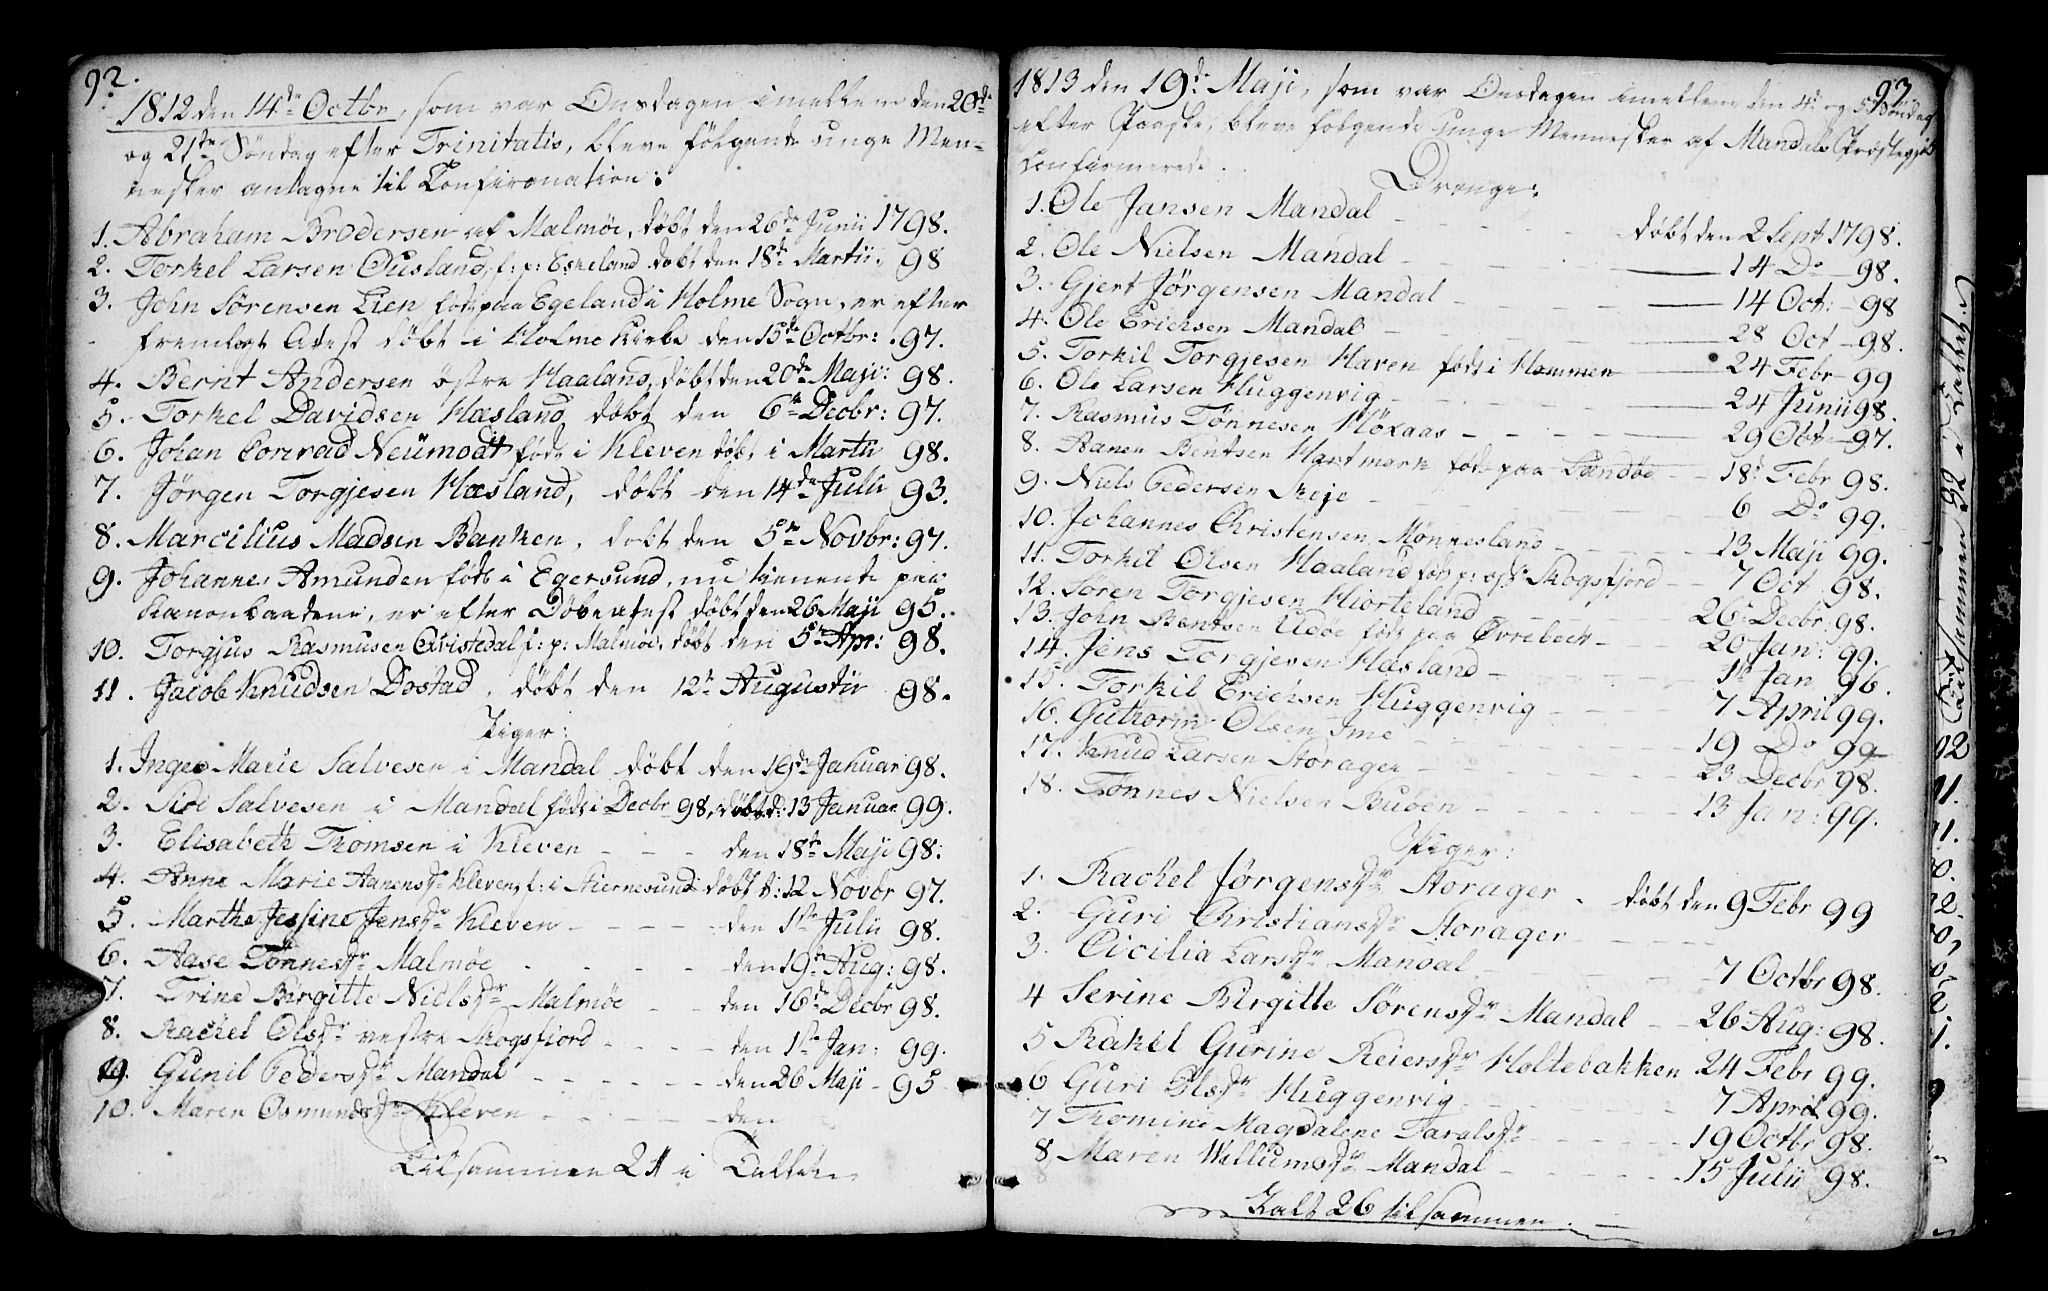 92.
1812 den 14de Octbr, som var Onsdagen imellem den 20de
og 21te Söndag efter Trinitatis, bleve fölgende unge Men-
nesker antagne til Confirmation:
1. Abraham Brodersen af Malmöe, döbt den 26de Junii 1798.
2. Torkel Larsen Ousland, f: p: Eskeland döbt den 18de Martii, 98
3. John Sörensen Lien född paa Egeland i Holme Sogn, er efter
fremlagt Atest döbt i Holme Kirke den 15de Octbr: 97.
4. Bernt Andersen östre Haaland, döbt den 20de Maji: 98.
5. Torkel Davidsen Hæsland, döbt den 6te Decbr: 97.
6. Johan Conrad Neümodt föd i Kleven döbt i Martii 98.
7. Jörgen Torgjesen Hæsland, döbt den 14de Julii 93.
8. Marcilius Madsen Banken, döbt den 5te Novbr: 97.
9. Johannes Amunden föd i Egersund, nu tienende paa
Kanonbaadene, er efter Döbeatest döbt den 26 Maji 95.
10. Torgjus Rasmusen Qvistedal f: p: Malmöe, döbt den 5te Apr: 98.
11. Jacob Knudsen Dostad, döbt den 12te Augustii 98.
Piger:
1. Inger Marie Salvesen i Mandal döbt den 16de Januar 98.
2. Siri Salvesen i Mandal föd i Decbr 98, döbt d: 13 Januar 99.
3. Elisabeth Thomsen i Kleven - - - den 18de Maji 98:
4. Anne Marie Aanensdr Kleven, f: i Kiernesund döbt d: 12 Novbr 97.
5. Marthe Jessine Jensdr Kleven - - - - den 1ste Julii 98.
6. Aase Tönnesdr Malmöe - - - - den 19de Aug: 98.
7. Trine Birgitte Nielsdr Malmöe - - den 16de Decbr 98.
8. Rachel Olsdr vestre Skogsfiord - - - - den 1ste Jan: 99.
9. Gunil Pedersdr Mandal - - - - - den 26 Maji - 95
10. Maren Osmundsdr Kleven - - - - - den
Tilsammen 21 i Tallet
93
1813 den 19de Maji, som var Onsdagen imellem den 4de og 5te Söndag
efter Paaske, bleve fölgende unge Mennesker af Mandals Præstegjeld
Confirmerede.
Drenge:
1. Ole Jansen Mandal - - - - döbt den 2 Sept 1798.
2. Ole Nielsen Mandal - - - - 14 Do - 98.
3. Gjert Jörgensen Mandal - - - 14 Oct: - 98
4. Ole Erichsen Mandal - - - - 28 Oct - 98.
5. Torkil Torgjesen Haven föd i Hammen - 24 Febr - 99
6. Ole Larsen Huggenvig - - - - 24 Junii 98.
7. Rasmus Tönnesen Höxaas - - - - 29 Obt - 97.
8. Aanen Bentsen Hartmark föd paa Landöe - 18de Febr 98.
9. Niels Pedersen Skeje - - - - 6 Do 99.
10. Johannes Christensen Mönnesland - - - - 13 Maji 99.
11. Torkil Olsen Haaland föd p: Skogsfjord - - 7 Oct 98.
12. Sören Torgjesen Hiorteland - - - - 26de Decbr 98.
13. John Bentsen Udöe föd paa Övrebech - - - 20 Jan: 99.
14. Jens Torgjesen Hæsland - - - - 1ste Jan 96.
15. Torkil Erichsen Huggenvig - - - - 7 April 99.
16. Guthorm Olsen Ime - - - - 19 Do 99
17. Knud Larsen Storager - - - - 23 Decbr 98.
18. Tönnes Nielsen Buböen - - - - 13 Jan: 99.
Piger:
1. Rachel Jörgensdr Storager - döbt den 9 Febr 99
2. Guri Christiansdr Storager - - - -
3. Cicilia Larsdr Mandal - - - - 7 Octbr 98.
4 Serine Birgitte Sörensdr Mandal - - 26 Aug: 98.
5 Rakel Gurine Reiersdr Holtebakken 24 Febr 99.
6 Guri Olsdr Huggenvig - - - - 7 April 99.
7 Thomine Magdalene Taralsdr - - - - 19 Octbr 98.
8 Maren Wellumsdr Mandal - - - - 15 Julii 98.
Talt 26 tilsammen.